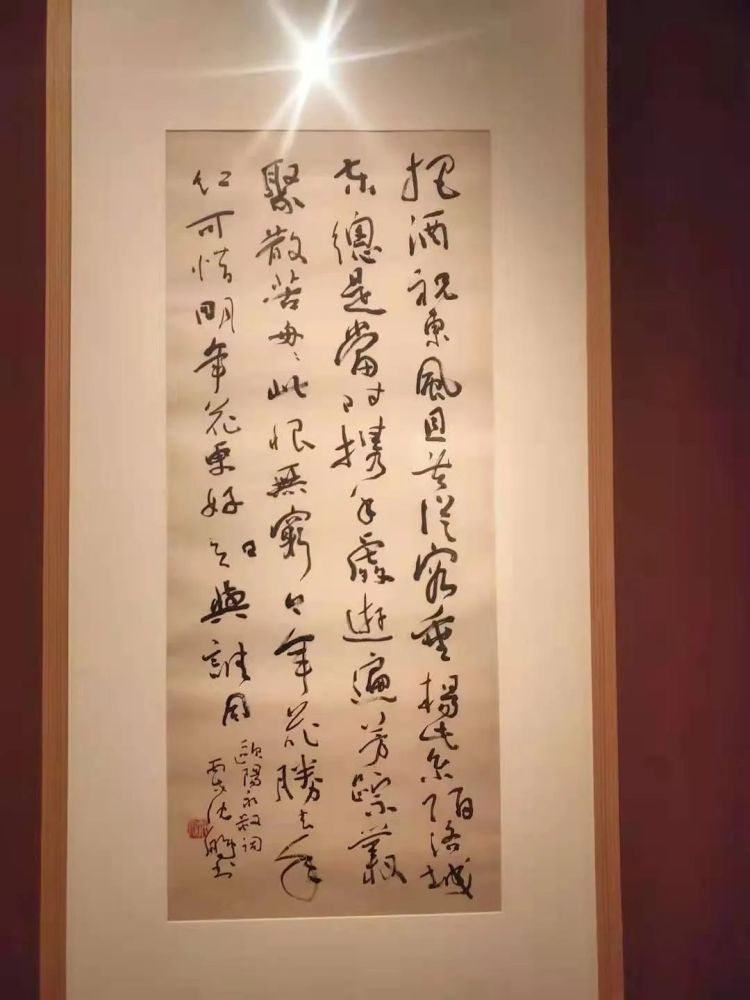 把酒祝東風且共從容垂楊紫陌洛城
東總是當時携手處遊遍芳踪叢
聚散苦匆〻此恨無窮今年花勝去年
紅可惜明年花更好知與誰同
歐陽永叔詞
沈鵬書